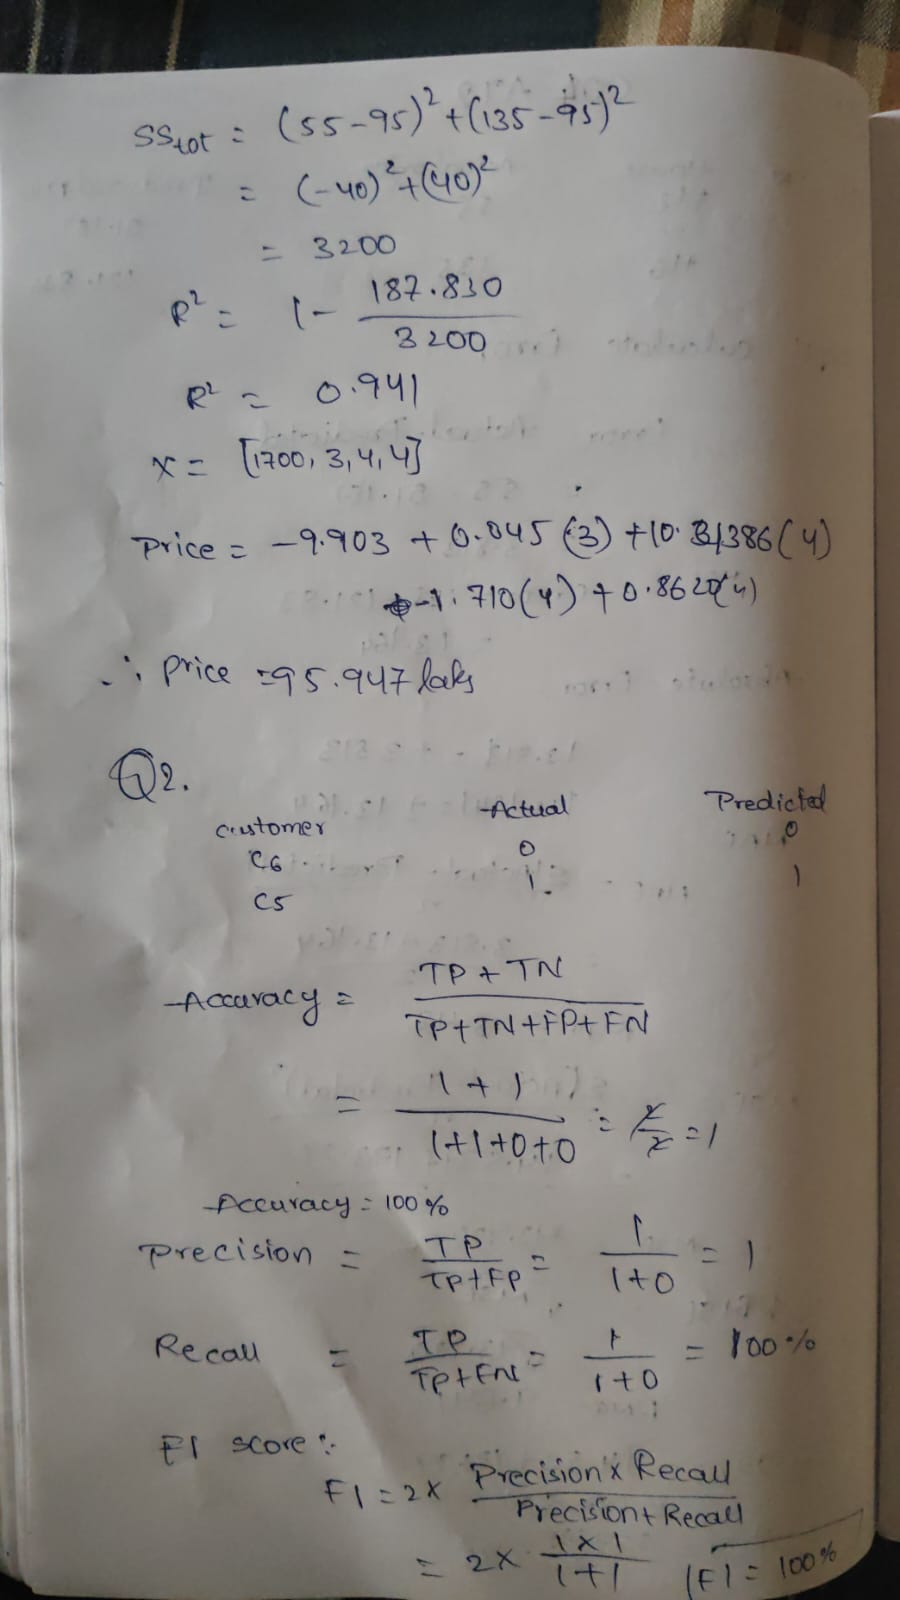 SStot = (55-95)² + (135-95)²
= (-40)² + (40)²
= 3200
R² = 1 - 187.830 / 3200
R² = 0.941
x = [1700, 3, 4, 4]
Price = -9.903 + 0.045 (3) + 10. 386 (4)
-1.710(4) + 0.862 (4)
∴ Price = 95.947 laks
Q2.
Customer Actual Predicted
C6 0 0
C5 1. 1
Accuracy = TP + TN / TP + TN + FP + FN
= 1 + 1 / 1+1+0+0 = 2/2 = 1
Accuracy = 100%
Precision = TP / TP+FP = 1 / 1+0 = 1
Recall = TP / TP+FN = 1 / 1+0 = 100%
F1 score :-
F1 = 2 x Precision x Recall / Precision + Recall
= 2 x 1 x 1 / 1+1 F1 = 100%